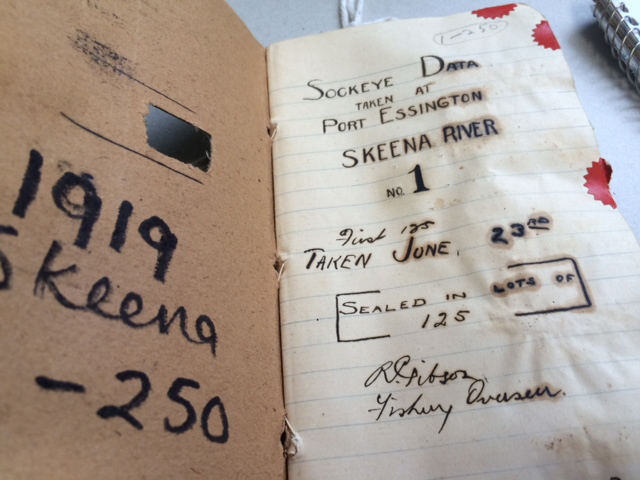 1919
Skeena
-250
1-250
SOCKEYE DATA
TAKEN AT
PORT ESSINGTON
SKEENA RIVER
NO. 1
First 125
TAKEN JUNE, 23RD
SEALED IN LOTS OF
125
R. Gibson
Fishery Overseer.